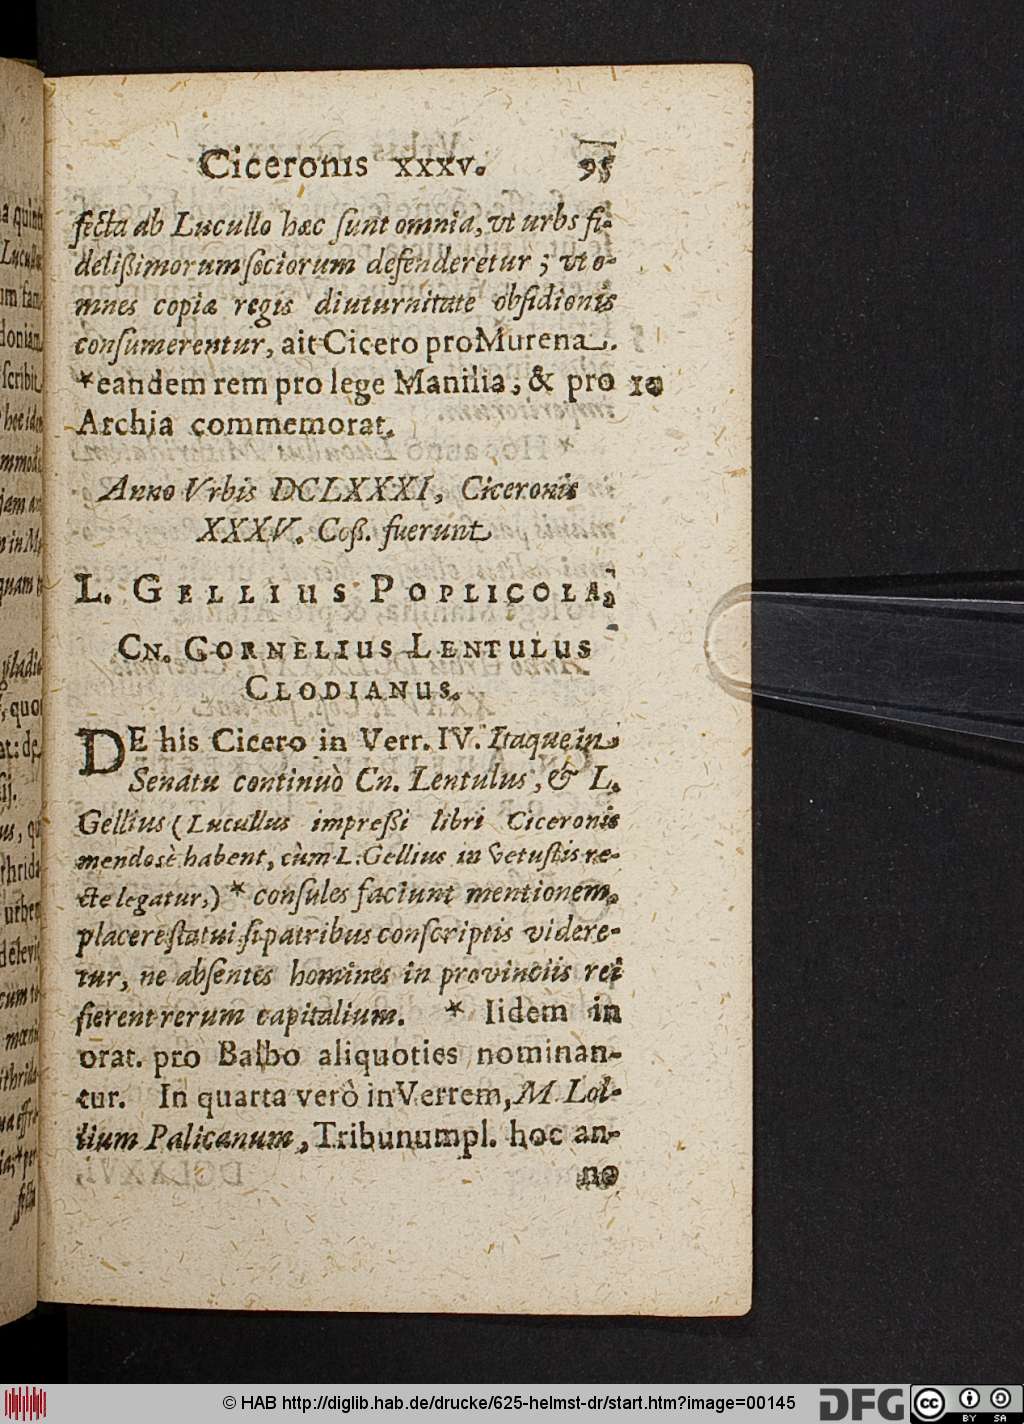 Ciceronis xxxv. 95
fecta ab Lucullo hæc ſunt omnia, vt urbs fi-
delißimorum ſociorum defenderetur ; vt o-
mnes copiæ regis diuturnitate obſidionis
conſumerentur, ait Cicero pro Murena.
*eandem rem pro lege Manilia, & pro 10
Archia commemorat.
Anno Vrbis DCLXXXI, Ciceronis
XXXV. Coß. fuerunt
L. GELLIUS POPLICOLA,
CN. CORNELIUS LENTULUS
CLODIANUS.
DE his Cicero in Verr. IV. Itaque in
Senatu continuò Cn. Lentulus, & L.
Gellius (Lucullus impreßi libri Ciceronis
mendosè habent, cùm L. Gellius in vetuſtis re-
cte legatur,) * conſules faciunt mentionem,
placere ſtatui ſi patribus conſcriptis videre-
tur, ne abſentes homines in provinciis rei
fierent rerum capitalium. * Iidem in
orat. pro Balbo aliquoties nominan-
tur. In quarta verò in Verrem, M. Lol-
lium Palicanum, Tribunum pl. hoc an-
no
© HAB http://diglib.hab.de/drucke/625-helmst-dr/start.htm?image=00145
DFG
cc BY SA